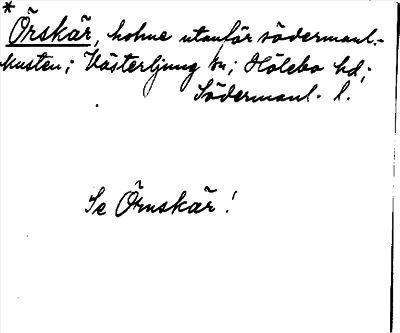 *
Örskär, holme utanför södermanl.-
kusten; Västerljung sn; Hölebo hd;
Södermanl. l.
Se Örnskär!